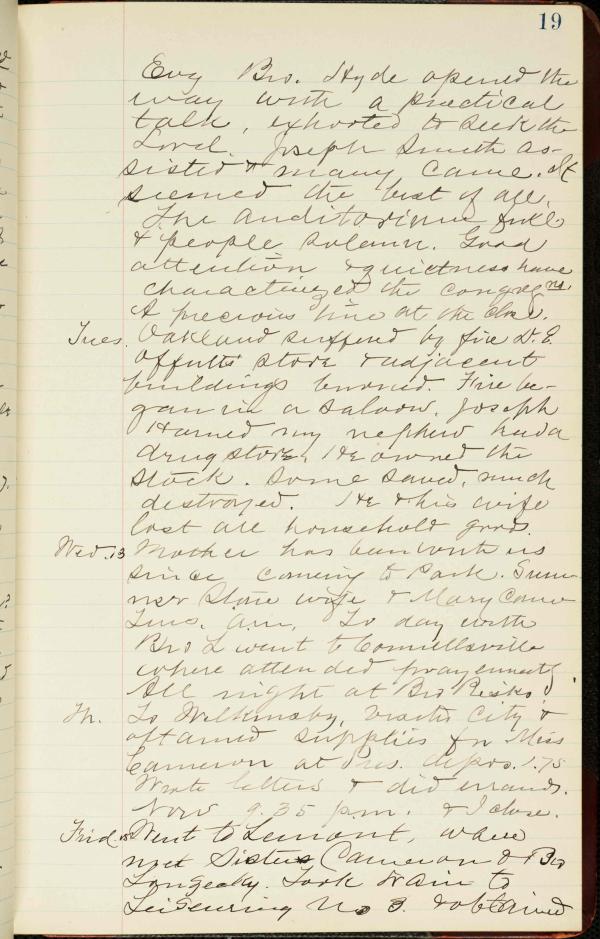 19
Evg Bro. Hyde opened the
way with a practical
talk, exhorted to seek the
Lord. Joseph Smith as-
sisted & many came. It
seemed the best of all.
The Auditorium full
& people solemn. Good
attention & quietness have
characterized the congregns.
A precious time at the close.
Tues. Oakland suffered by fire D. E.
Offutts store & adjacent
buildings burned. Fire be-
gan in a saloon. Joseph
Harned my nephew had a
drug store. He owned the
stock. Some saved, much
destroyed. He & his wife
lost all household goods.
Wed. 13 Mother has been with us
since coming to Park. Sum-
ner Stone wife & Mary came
Tues. a.m. To day with
Bro L went to Connellsville
where attended prayermeetg
All night at Bro Risks
Th. To Wilkinsbg, visited city &
obtained supplies for Miss
Cameron at Pres. depos. 1.75
Wrote letters & did errands.
Now 9.35 p.m. & I close.
Frid. 15 Went to Lemont, where
met Sisters Cameron & Bro
Took train to
Leisenring No 3. & obtained